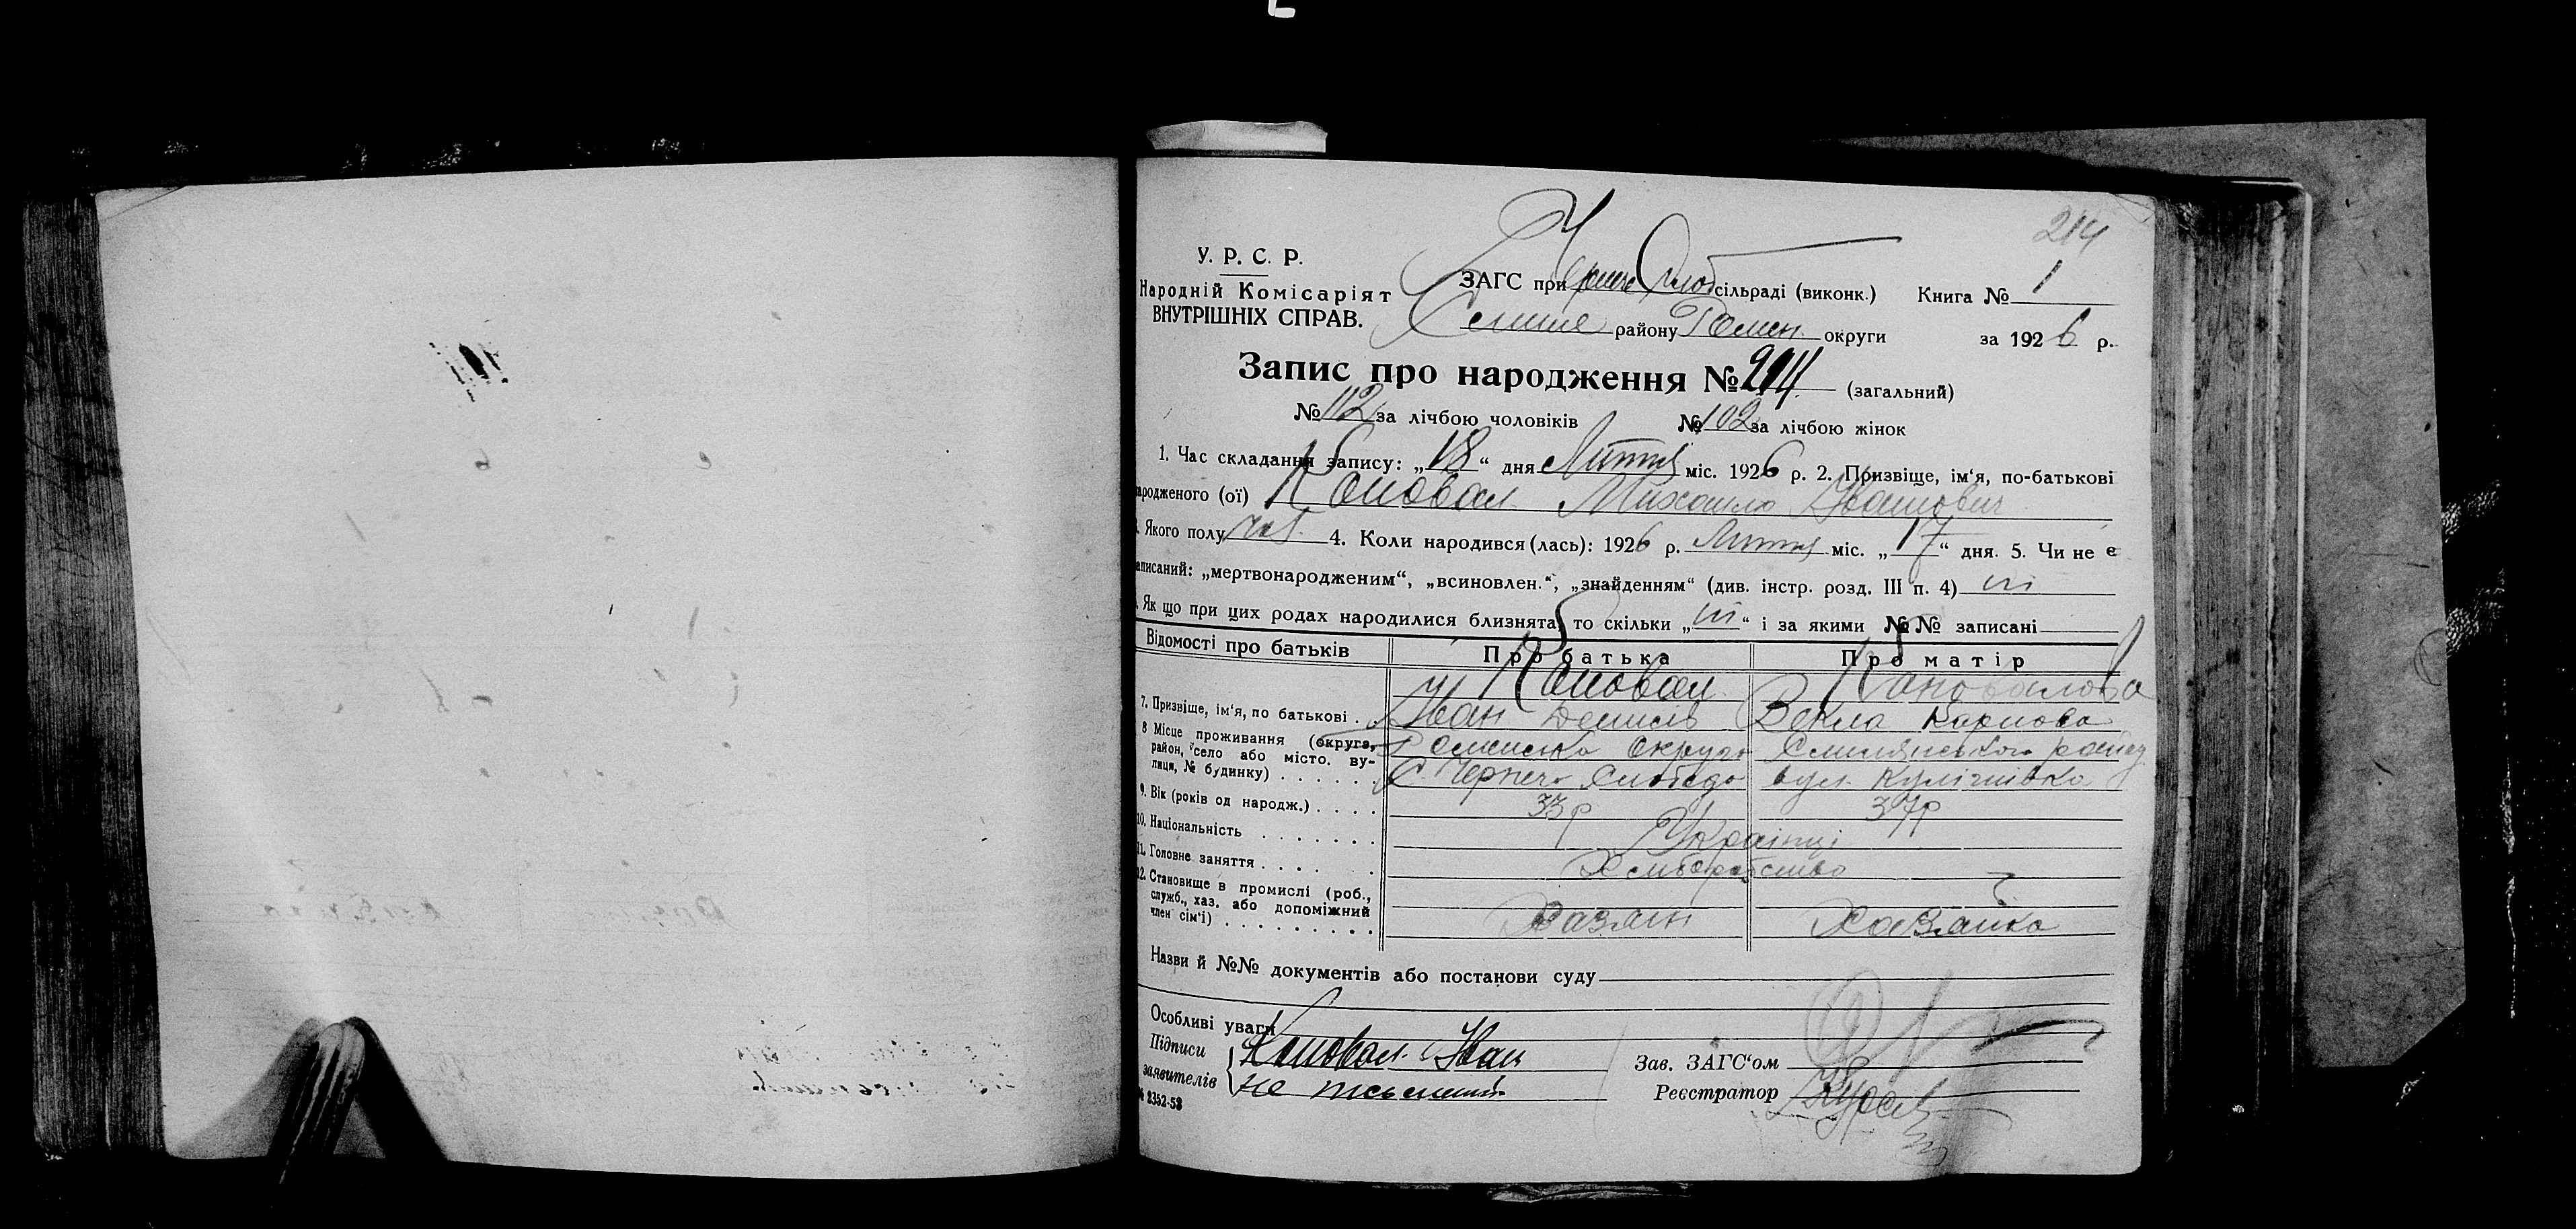 214
У. Р. С. Р.
Народній Комісаріят
ВНУТРІШНІХ СПРАВ.
ЗАГС при Чернече Слоб сільраді (виконк.) Книга № 1
району Ромен. округи за 1926 р.
Запис про народження № 214. (загальний)
№ 112 за лічбою чоловіків № 102 за лічбою жінок
1. Час складання запису: „18“ дня Липня міс. 1926 р. 2. Призвіще, ім‘я, по-батькові
народженого (ої) Коновал Михайло Иванович
3. Якого полу чол. 4. Коли народився (лась): 1926 р. Липня міс. „17“ дня. 5. Чи не є
записаний: „мертвонародженим“, „всиновлен.“, „знайденням“ (див. інстр. розд. III п. 4) ні
6. Як що при цих родах народилися близнята, то скільки „ні“ і за якими №№ записані
Відомості про батьків Про батька Про матір
Коновал Коновалова
7. Призвіще, ім‘я, по батькові . Иван Денисів Векла Карпова
8 Місце проживання (округа, район, село або місто. вулиця, № будинку) . . . . . Роменська Округа Смилянського району
С. Чернеча Слобода вул. Кулішівка
9. Вік (років од народж.) . . . . 33 р 37 р
10. Національність . . . . . . . Українці
11. Головне заняття . . . . . Хліборобство
12. Становище в промислі (роб., служб., хаз. або допоміжний член сім‘ї) . . . . . . . . . Хазяін Хазяйка
Назви й №№ документів або постанови суду
Особливі уваги
Підписи заявителів Коновал Иван
не письменний
Зав. ЗАГС‘ом
Реєстратор
№ 2352-53